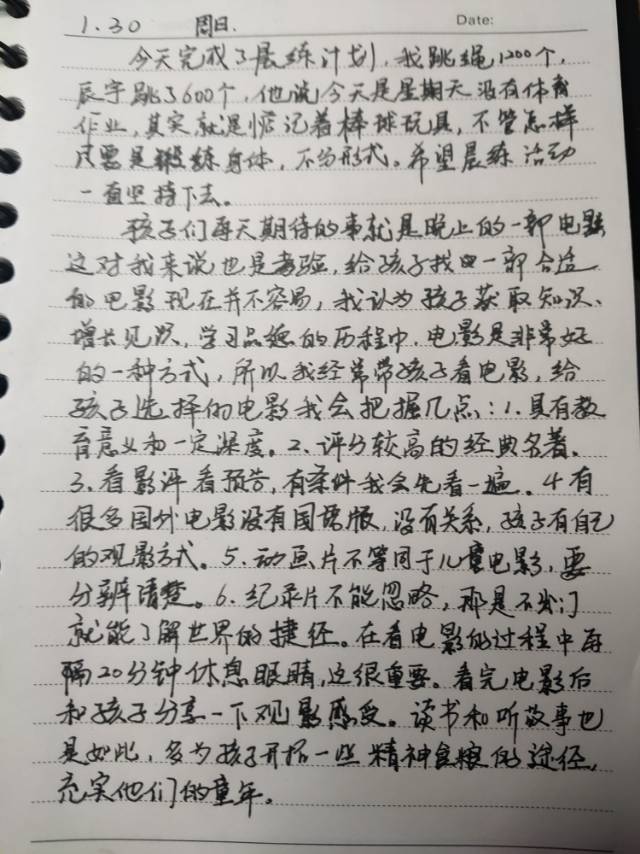 1.30 周日. Date:
今天完成了晨练计划，我跳绳1200个，
辰宇跳了600个，他说今天是星期天没有体育
作业，其实就是惦记着棒球玩具，不管怎样
只要是锻练身体，不分形式。希望晨练活动
一直坚持下去。
孩子们每天期待的事就是晚上的一部电影
这对我来说也是考验，给孩子找出一部合适
的电影现在并不容易，我认为孩子获取知识、
增长见识，学习品德的历程中，电影是非常好
的一种方式，所以我经常带孩子看电影，给
孩子选择的电影我会把握几点：1.具有教
育意义和一定深度。2.评分较高的经典名著。
3.看影评看预告，有条件我会先看一遍。4有
很多国外电影没有国语版，没有关系，孩子有自己
的观影方式。5.动画片不等同于儿童电影，要
分辨清楚。6.纪录片不能忽略，那是不出门
就能了解世界的捷径。在看电影的过程中每
隔20分钟休息眼睛，这很重要。看完电影后
和孩子分享一下观影感受。读书和听故事也
是如此，多为孩子开拓一些精神食粮的途径，
充实他们的童年。